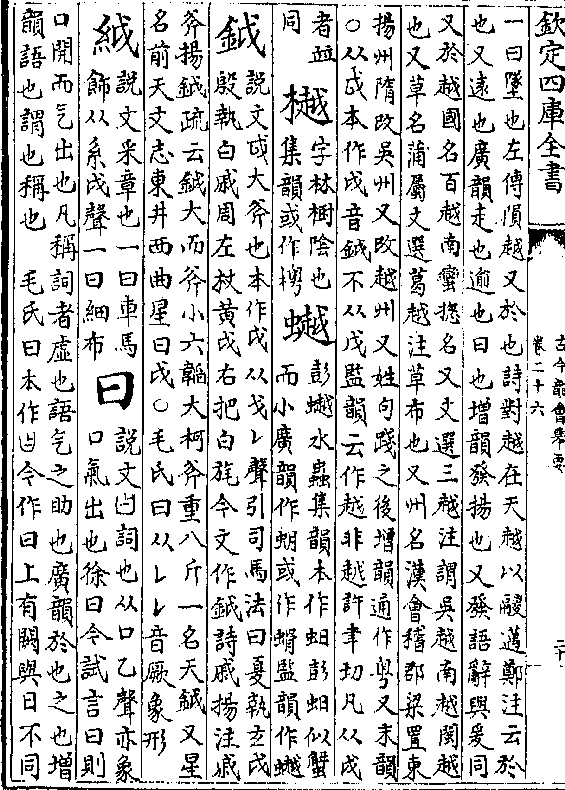 欽定四庫全書
古今韻會舉要
卷二十六
二十
一曰墜也左傳愼越又於也詩對越在天越以鬷邁鄭注云於
也又遠也廣韻走也逾也曰也增韻發揚也又發語辭與爰同
又於越國名百越南蠻摠名又文選三越注謂吳越南越閩越
也又草名蒲屬文選葛越注草布也又州名漢會稽郡梁置東
揚州隋改吳州又改越州又姓句踐之後增韻通作粤又末韻
○从戉本作戉音鉞不从戊監韻云作越非越許聿切凡从戉
者並同 樾 字林樹陰也集韻或作㯽 蟚 彭蟚水蟲集韻本作䖼彭䖼似蟹而小廣韻作蚏或作蝟監韻作蟚
鉞 說文戉大斧也本作戉从戈𠄌聲引司馬法曰夏執玄戉
殷執白戚周左杖黃戉右把白旄今文作鉞詩戚揚注戚
斧揚鉞疏云鉞大而斧小六韜大柯斧重八斤一名天鉞又星
名前天文志東井西曲星曰戉○毛氏曰从𠄌𠄌音厥象形
絨 說文采章也一曰車馬飾从糸戉聲一曰細布 曰 說文曰詞也从口乙聲亦象口氣出也徐曰今試言曰則
口開而气出也凡稱詞者虛也語气之助也廣韻於也之也增
韻語也謂也稱也 毛氏曰本作𠙵今作曰上有闕與日不同